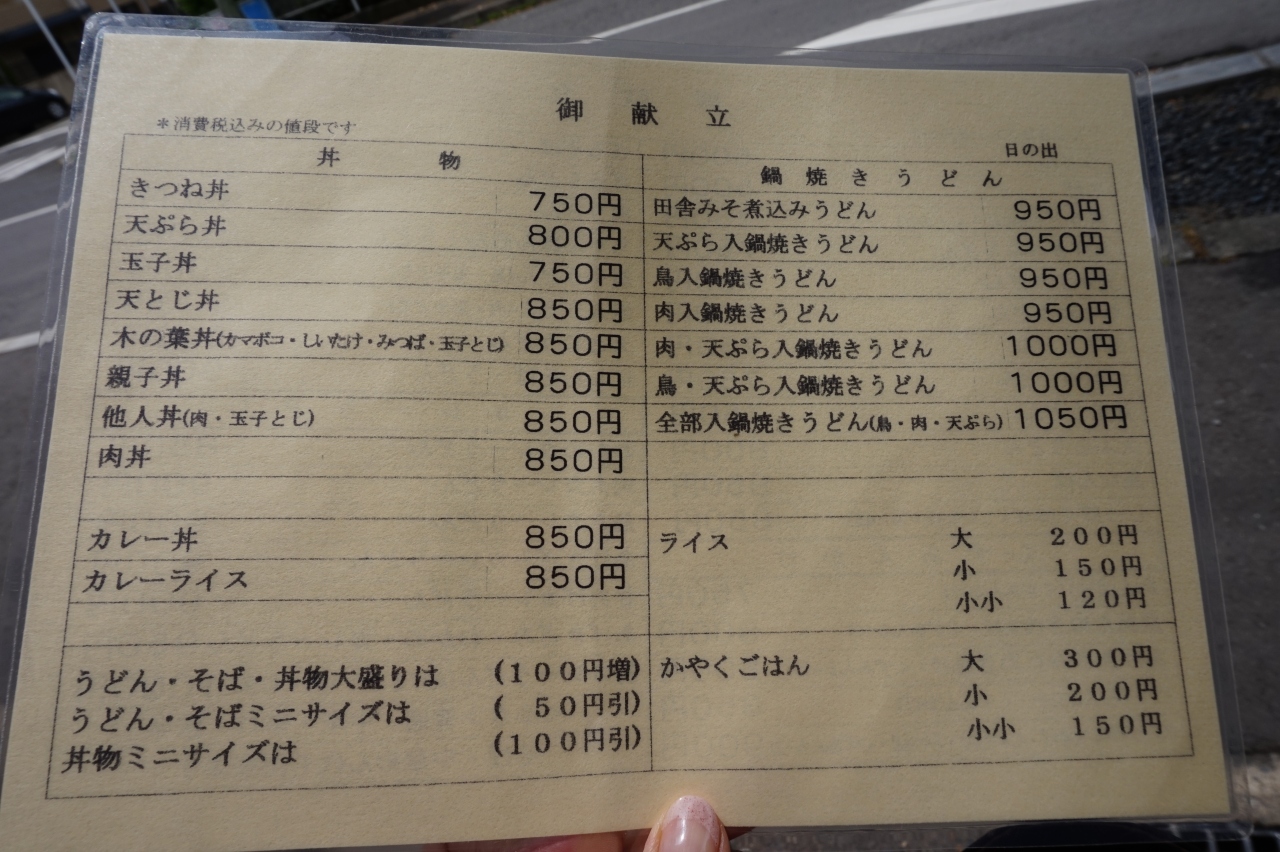 御献立
＊消費税込みの値段です
日の出
丼物
きつね丼 750円
天ぷら丼 800円
玉子丼 750円
天とじ丼 850円
木の葉丼(カマボコ・しいたけ・みつば・玉子とじ) 850円
親子丼 850円
他人丼(肉・玉子とじ) 850円
肉丼 850円
カレー丼 850円
カレーライス 850円
うどん・そば・丼物大盛りは (１００円増)
うどん・そばミニサイズは (　５０円引)
丼物ミニサイズは (１００円引)
鍋焼きうどん
田舎みそ煮込みうどん 950円
天ぷら入鍋焼きうどん 950円
鳥入鍋焼きうどん 950円
肉入鍋焼きうどん 950円
肉・天ぷら入鍋焼きうどん 1000円
鳥・天ぷら入鍋焼きうどん 1000円
全部入鍋焼きうどん(鳥・肉・天ぷら) 1050円
ライス 大 ２００円
小 １５０円
小小 １２０円
かやくごはん 大 ３００円
小 ２００円
小小 １５０円